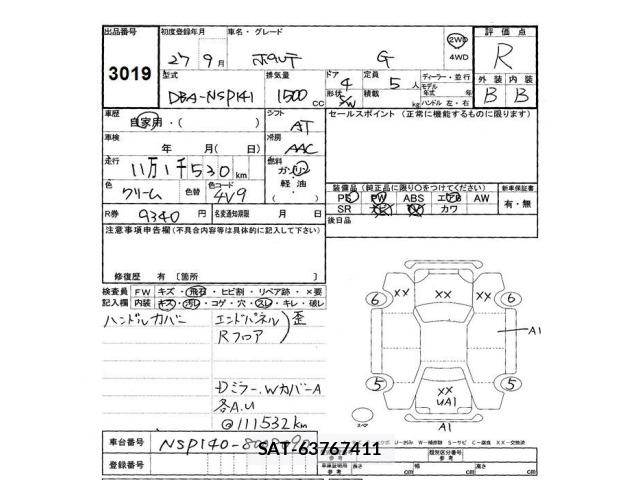 出品番号
3019
初度登録年月
27 9月
車名・グレード
ポルテ G
2WD
4WD
評価点
R
型式
DBA-NSP141
排気量
1500 cc
ドア
4
形状
S/W
定員
5人
積載
kg
ディーラー・並行
モデル
年式 年
ハンドル 左・右
外装 内装
B B
車歴
自家用・( )
シフト
AT
セールスポイント (正常に機能するものに限ります)
車検
年 月(日)
冷房
AAC
走行
11万1千530km
燃料
ガソリン
軽油
( )
色
クリーム
色替
色コード
4V9
装備品 (純正品に限り○をつけてください)
新車保証書
PS PW ABS エアB AW
SR カワ
有・無
R券
9340円
名変通知期限 月 日
後日品
注意事項申告欄(不具合内容等は具体的に記入して下さい)
修復歴 有 〔箇所 〕
検査員
記入欄
FW キズ・飛石・ヒビ割・リペア跡・×要
内装 キズ・汚れ・コゲ・穴・スレ・キレ・破レ
ハンドルカバー
エンドパネル
Rフロア
歪
Dミラー.WカバーA
各A.U
@111532km
6 ×× ×× ×× 6
A1
5 ×× UA1 5
スペア
A1
車台番号
NSP140-
SAT-63767411
登録番号
類別区分番号
参考
車庫証明用
参考
長さ cm
幅 cm
高さ cm